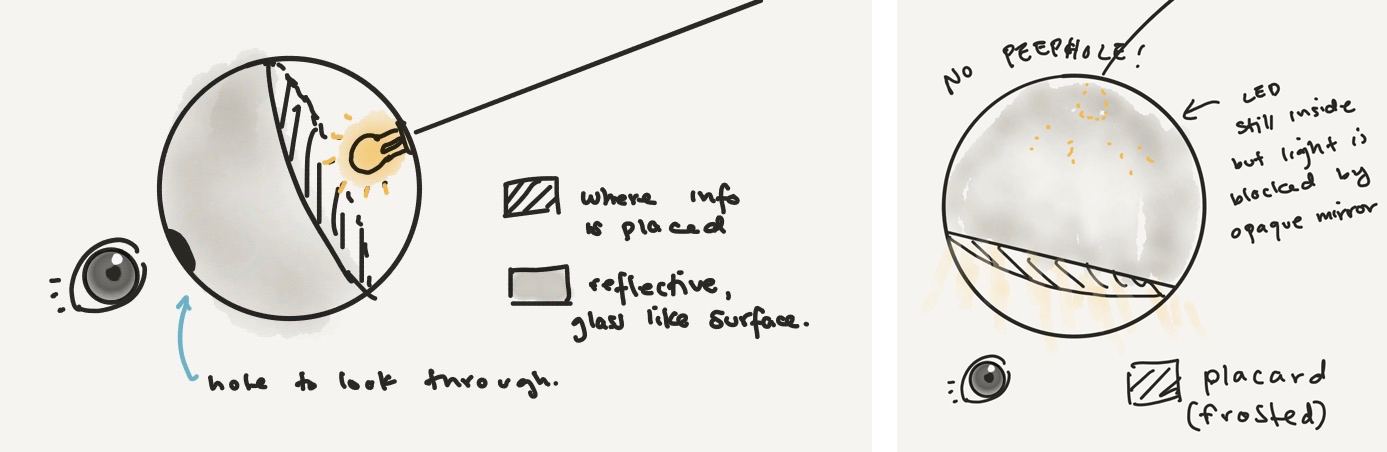 where info
is placed
reflective,
glass like surface.
hole to look through.
NO PEEPHOLE!
LED
still inside
but light is
blocked by
opaque mirror
placard
(frosted)